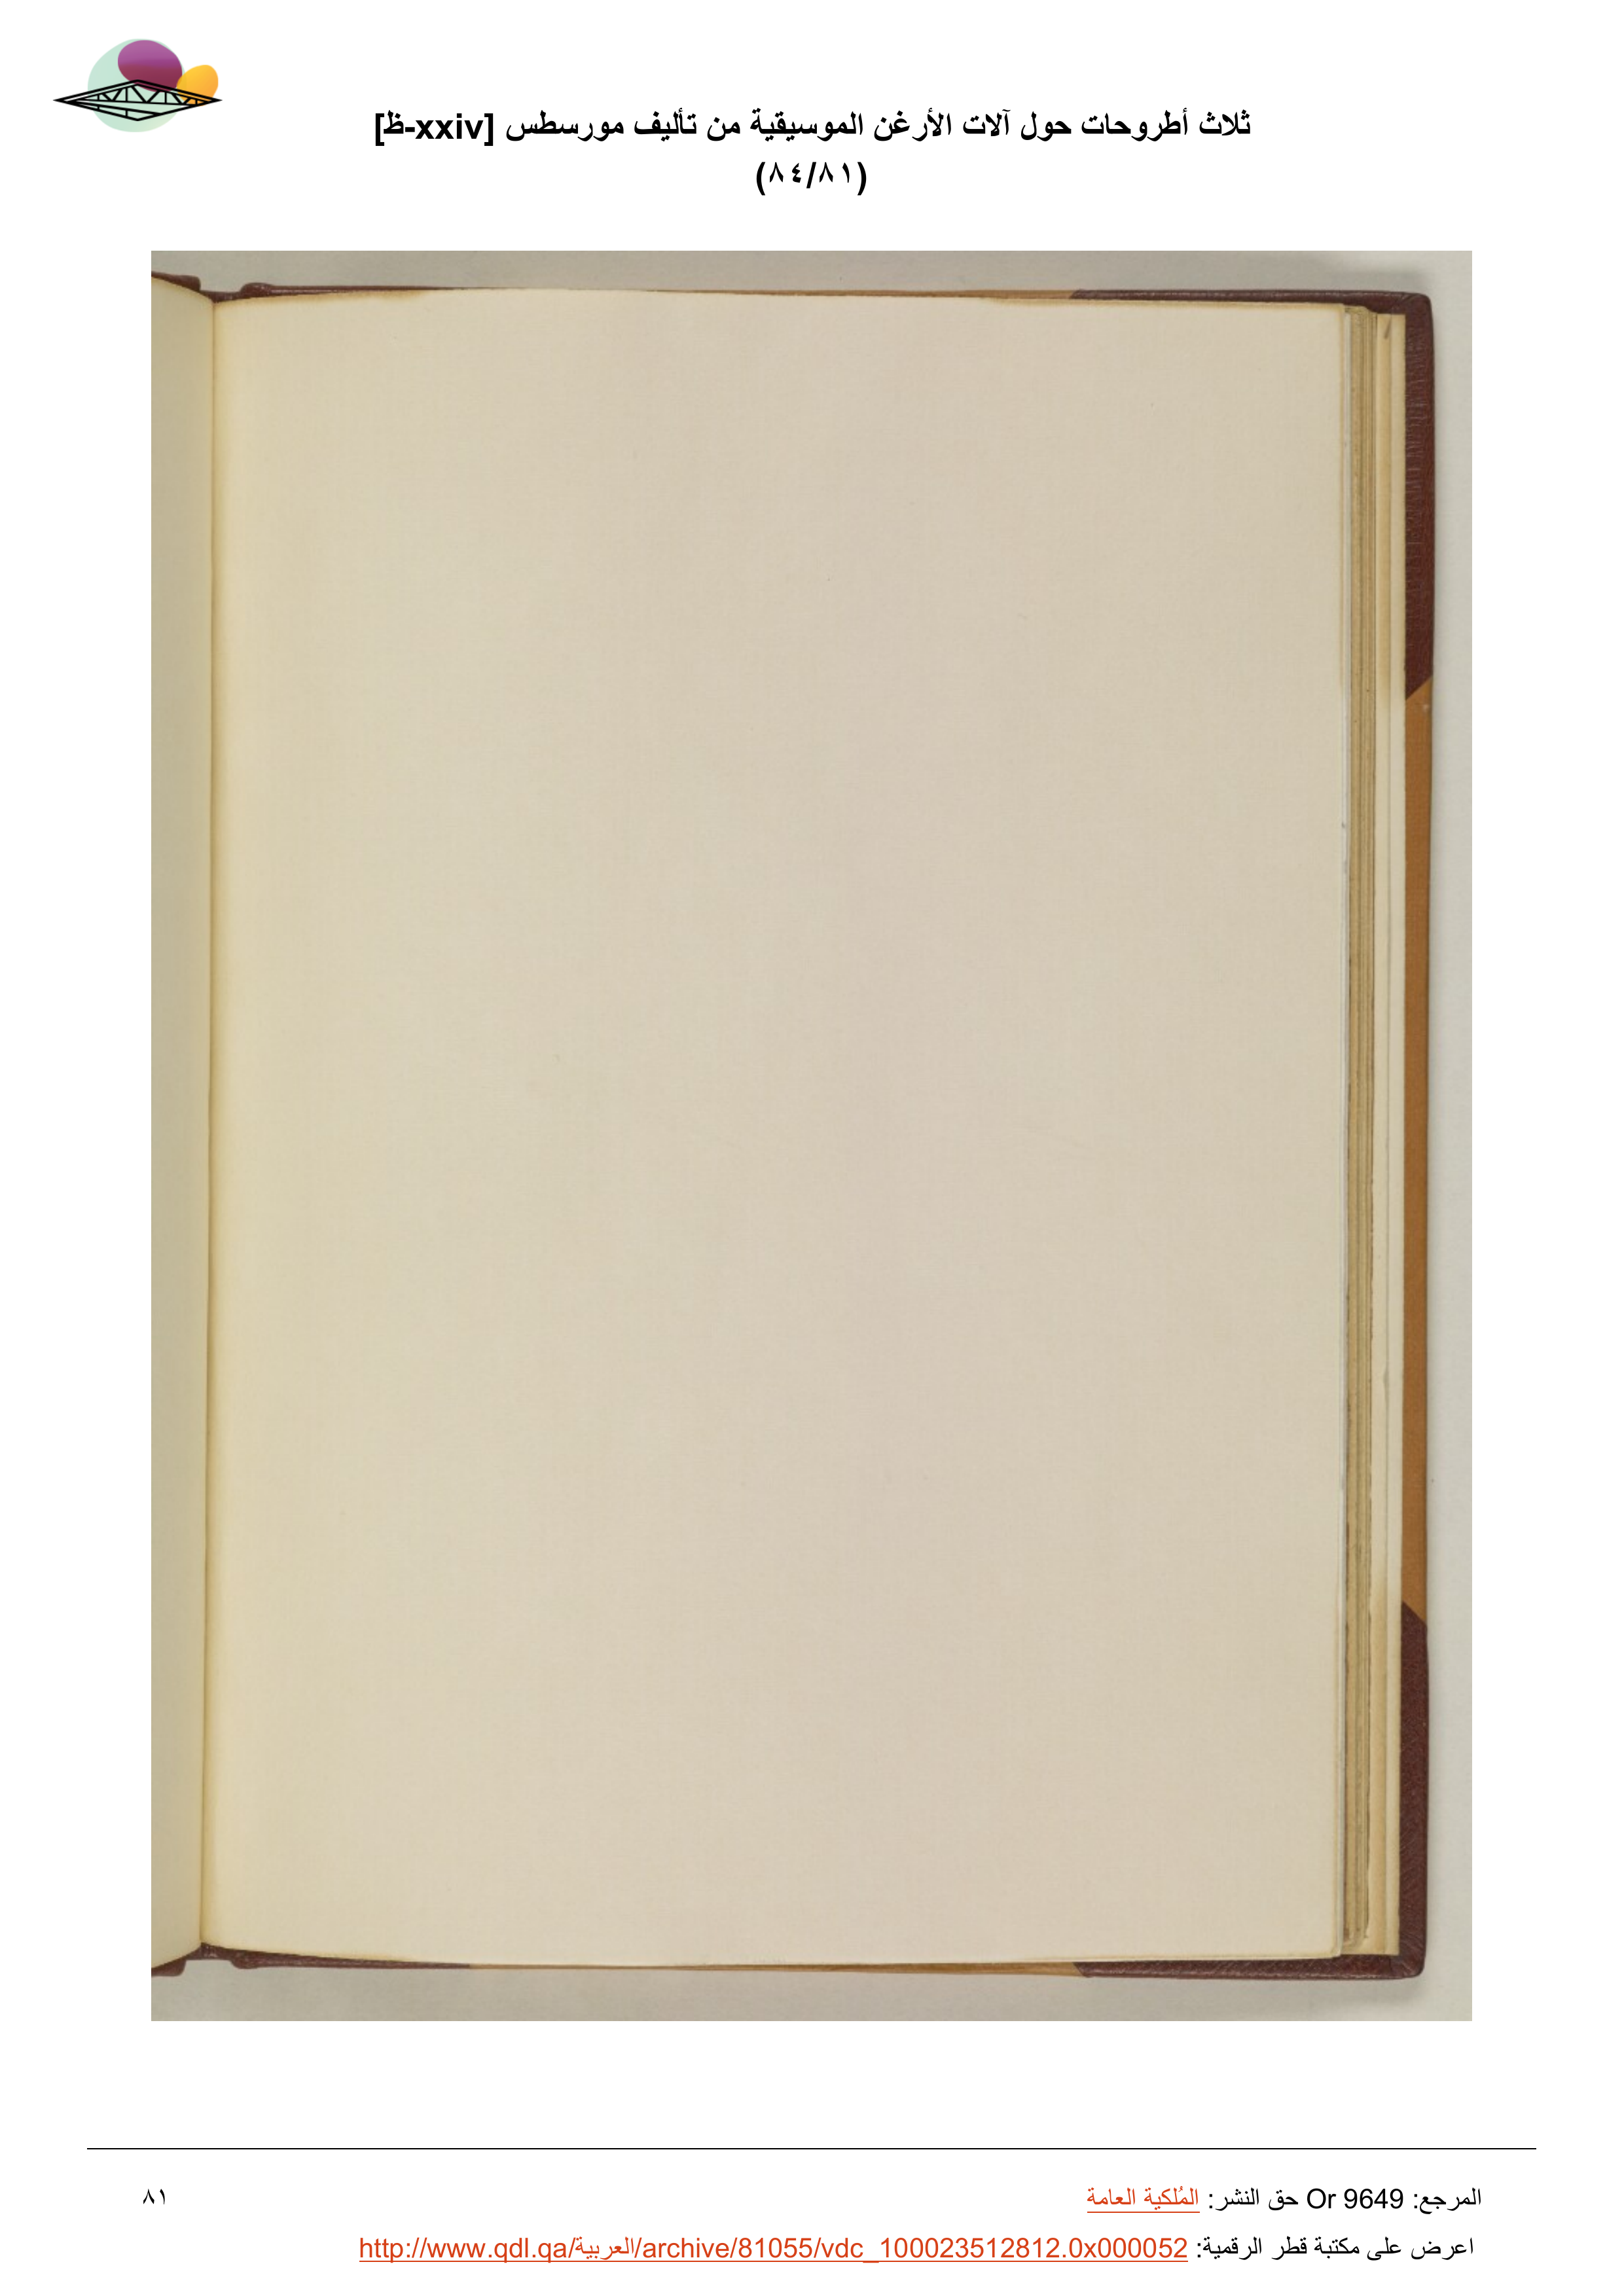 ثلاث أطروحات حول آلات الأرغن الموسيقية من تأليف مورسطس [xxiv-ظ]
(٨٤/٨١)
المرجع: Or 9649 حق النشر: المُلكية العامة
٨١
اعرض على مكتبة قطر الرقمية: http://www.qdl.qa/العربية/archive/81055/vdc_100023512812.0x000052